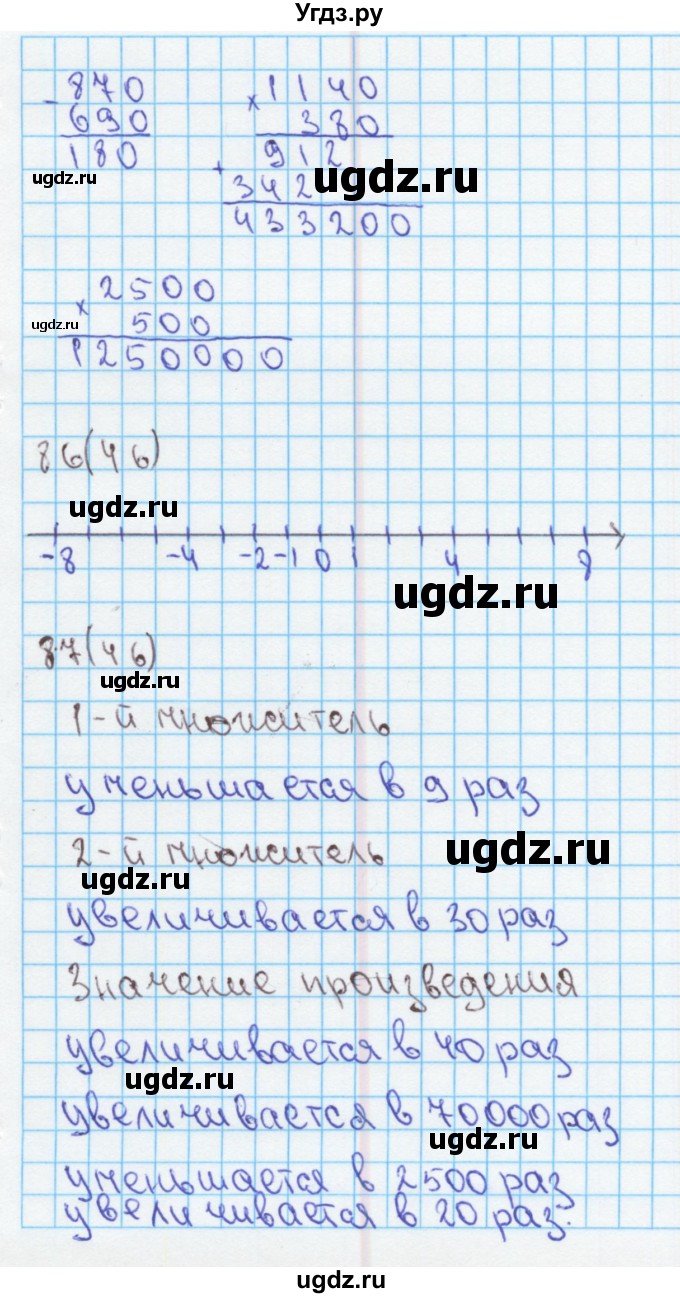 Угдз.ру
- 870
690
180
× 1140
380
912
+ 342
433200
ugdz.ru
ugdz.ru
× 2500
500
1250000
ugdz.ru
86(46)
ugdz.ru
-8 -4 -2 -1 0 1 4 8
ugdz.ru
87(46)
ugdz.ru
1-й множитель
уменьшается в 9 раз
2-й множитель
ugdz.ru
ugdz.ru
увеличивается в 30 раз
Значение произведения
увеличивается в 40 раз
ugdz.ru
увеличивается в 70000 раз
ugdz.ru
уменьшается в 2500 раз
увеличивается в 20 раз.
ugdz.ru